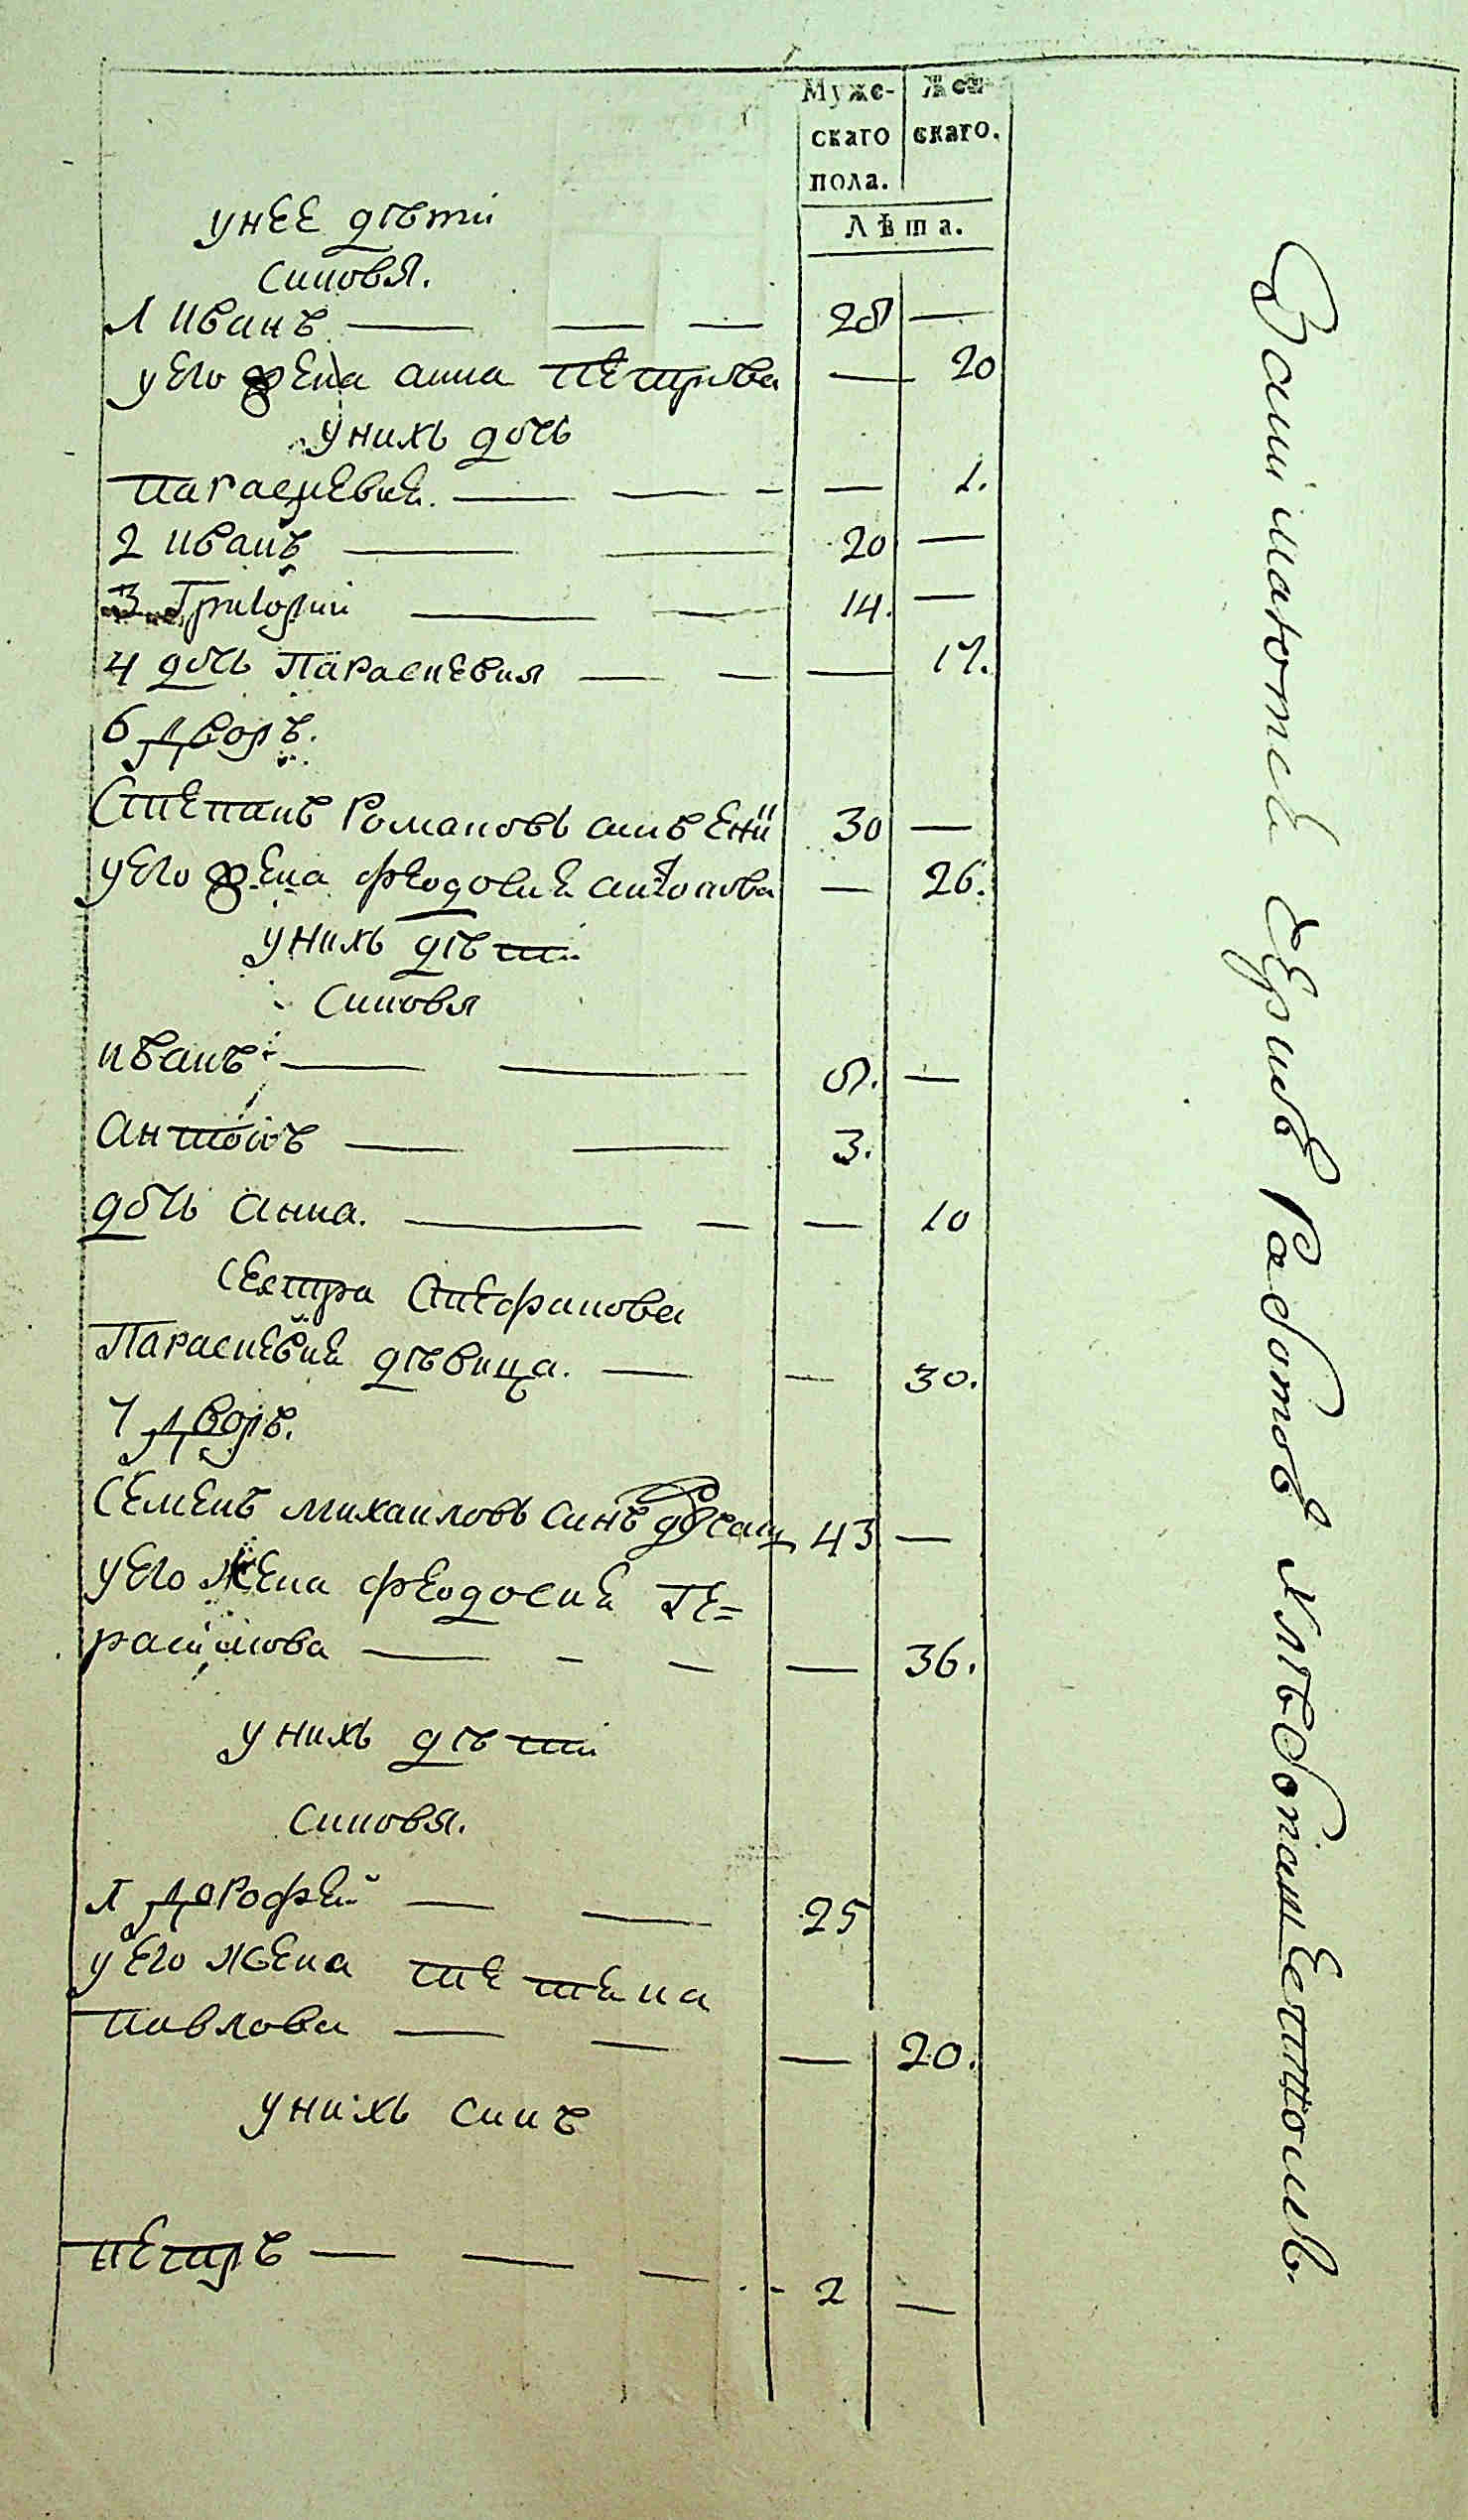 Муже- Жен-
скаго скаго.
пола.
Лѣта.
унее дѣти
синовя.
1 иванъ 28 —
у его жена анна петрова — 20
унихъ дочь
параскевия. — 1.
2 иванъ 20 —
3 Григорий 14. —
4 дочь Параскевия — 17.
6 Дворъ.
Степанъ Романовъ 30 —
у его жена феодосия антонова — 26.
унихъ дѣти
синовя
иванъ 5. —
антонъ 3.
дочь анна. — 10
сестра Стефанова
Параскевия дѣвица. — 30.
7 Дворъ.
Семенъ михаиловъ синъ 43 —
у его жена феодосия Ге=
расимова — 36.
унихъ дѣти
синовя.
1 Дорофей 25
у его жена тетяна
павлова — 20.
унихъ синъ
петръ 2 —
матфей работовъ